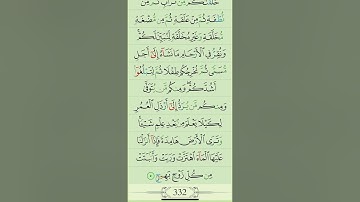 خَلَقْنَٰكُم مِّن تُرَابٍ ثُمَّ مِن
نُّطْفَةٍ ثُمَّ مِنْ عَلَقَةٍ ثُمَّ مِن مُّضْغَةٍ
مُّخَلَّقَةٍ وَغَيْرِ مُخَلَّقَةٍ لِّنُبَيِّنَ لَكُمْ
وَنُقِرُّ فِي الْأَرْحَامِ مَا نَشَآءُ إِلَىٰٓ أَجَلٍ
مُّسَمًّى ثُمَّ نُخْرِجُكُمْ طِفْلًا ثُمَّ لِتَبْلُغُوٓا
أَشُدَّكُمْ وَمِنكُم مَّن يُتَوَفَّىٰ
وَمِنكُم مَّن يُرَدُّ إِلَىٰٓ أَرْذَلِ الْعُمُرِ
لِكَيْلَا يَعْلَمَ مِنۢ بَعْدِ عِلْمٍ شَيْـًٔا
وَتَرَى الْأَرْضَ هَامِدَةً فَإِذَآ أَنزَلْنَا
عَلَيْهَا الْمَآءَ اهْتَزَّتْ وَرَبَتْ وَأَنۢبَتَتْ
مِن كُلِّ زَوْجٍۭ بَهِيجٍ
332